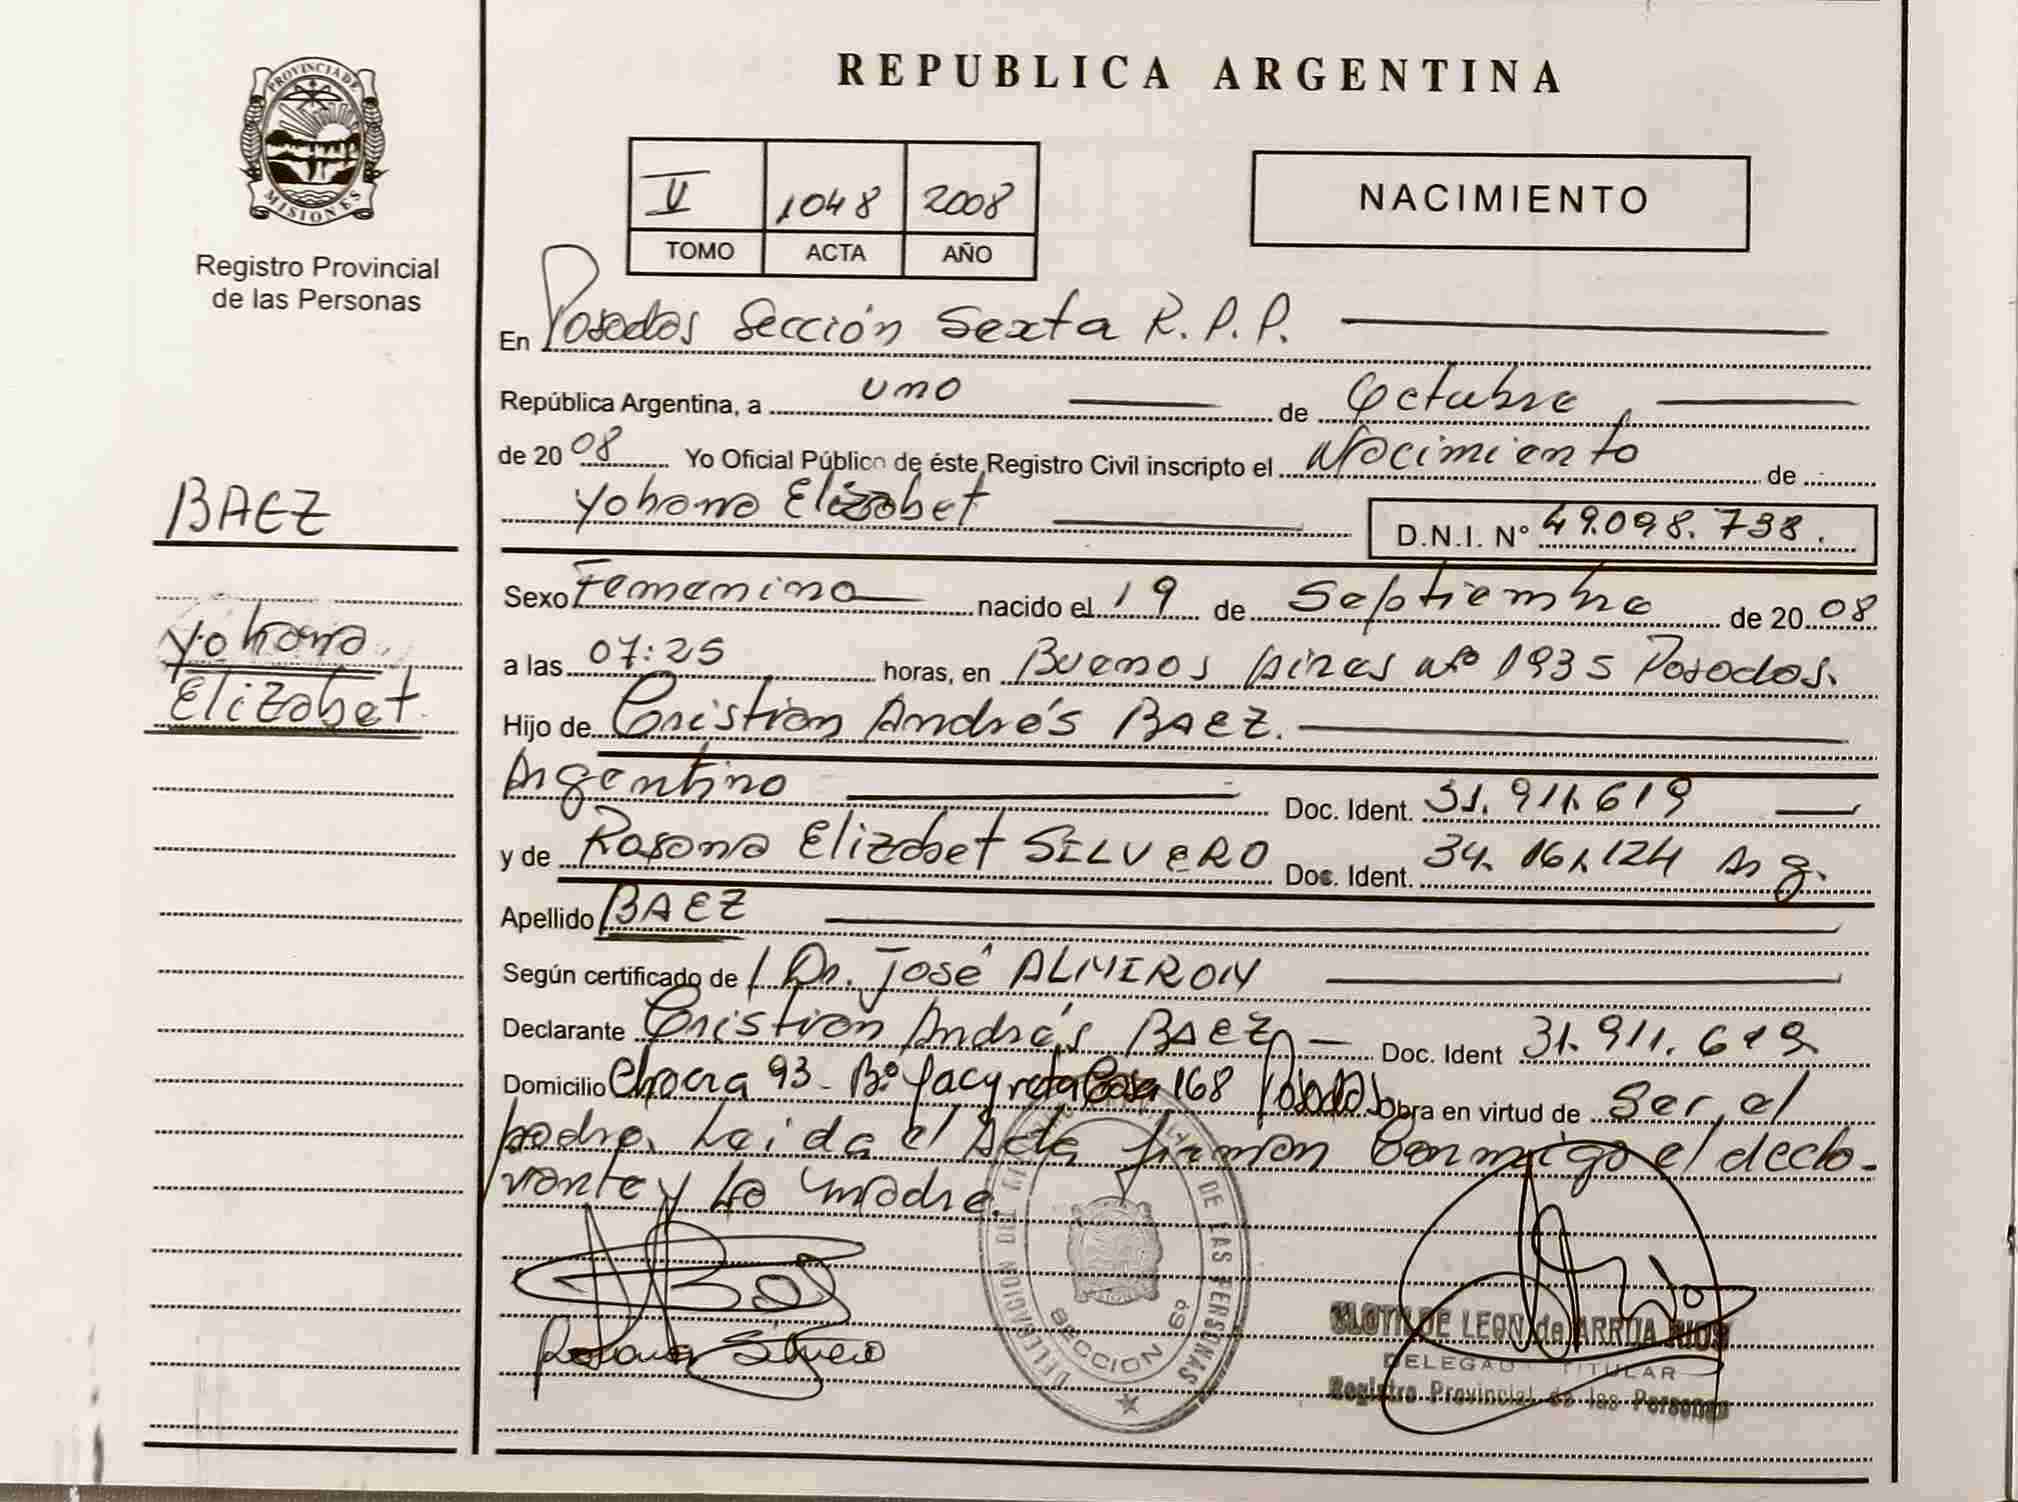 PROVINCIA DE
MISIONES
Registro Provincial
de las Personas
BAEZ
Yohana
Elizabet.
REPUBLICA ARGENTINA
V 1048 2008
TOMO ACTA AÑO
NACIMIENTO
En Posadas Sección Sexta R.P.P.
República Argentina, a uno de Octubre
de 2008 Yo Oficial Público de éste Registro Civil inscripto el Nacimiento de
Yohana Elizabet D.N.I. N° 49.098.738.
Sexo Femenino nacido el 19 de Septiembre de 2008
a las 07:25 horas, en Buenos Aires Nº 1935 Posadas.
Hijo de Cristian Andrés BAEZ.
Argentino Doc. Ident. 31.911.619
y de Rosana Elizabet SILVERO Doc. Ident. 34. 124 Arg.
Apellido BAEZ
Según certificado de Dr. José ALMIRON
Declarante Cristian Andrés BAEZ Doc. Ident 31.911.619
Domicilio Chacra 93 - Bº Yacyreta Casa 168 Posadas Obra en virtud de Ser el
padre. Leida el Acta firman conmigo el decla-
rante y la madre.
Rosana Silvero
DELEGACION DE LAS PERSONAS
SECCION 6º
CLOTILDE LEON de ARRUA RIOS
DELEGADO TITULAR
Registro Provincial de las Personas